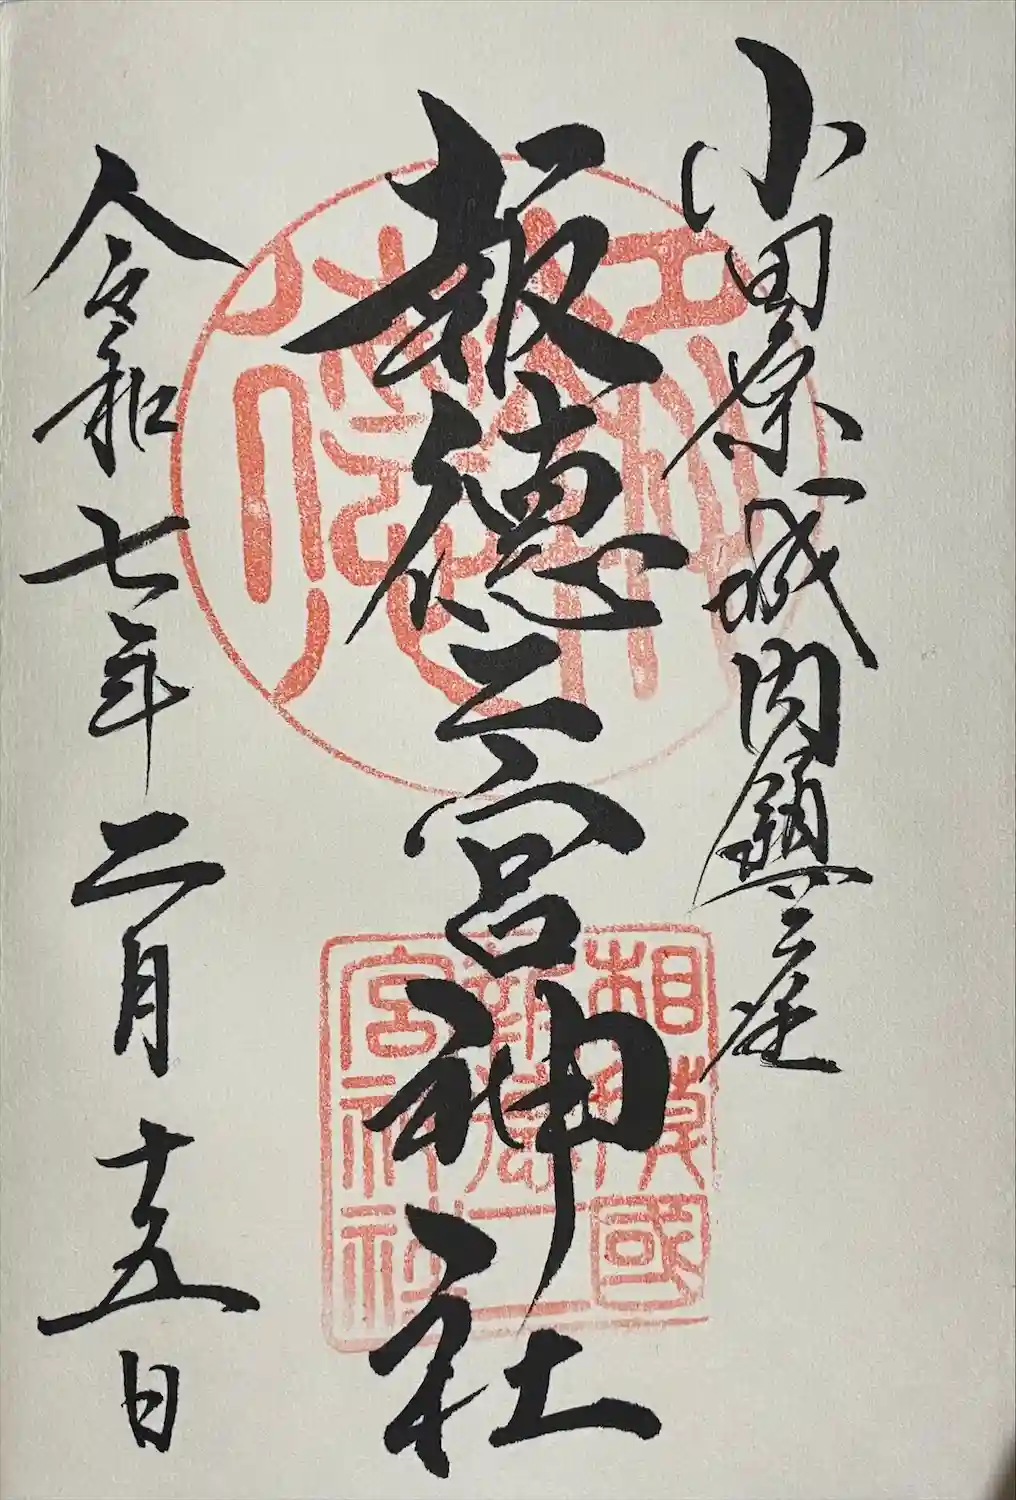 小田原城内鎮座
報徳二宮神社
令和七年二月十五日
相模國報徳二宮神社